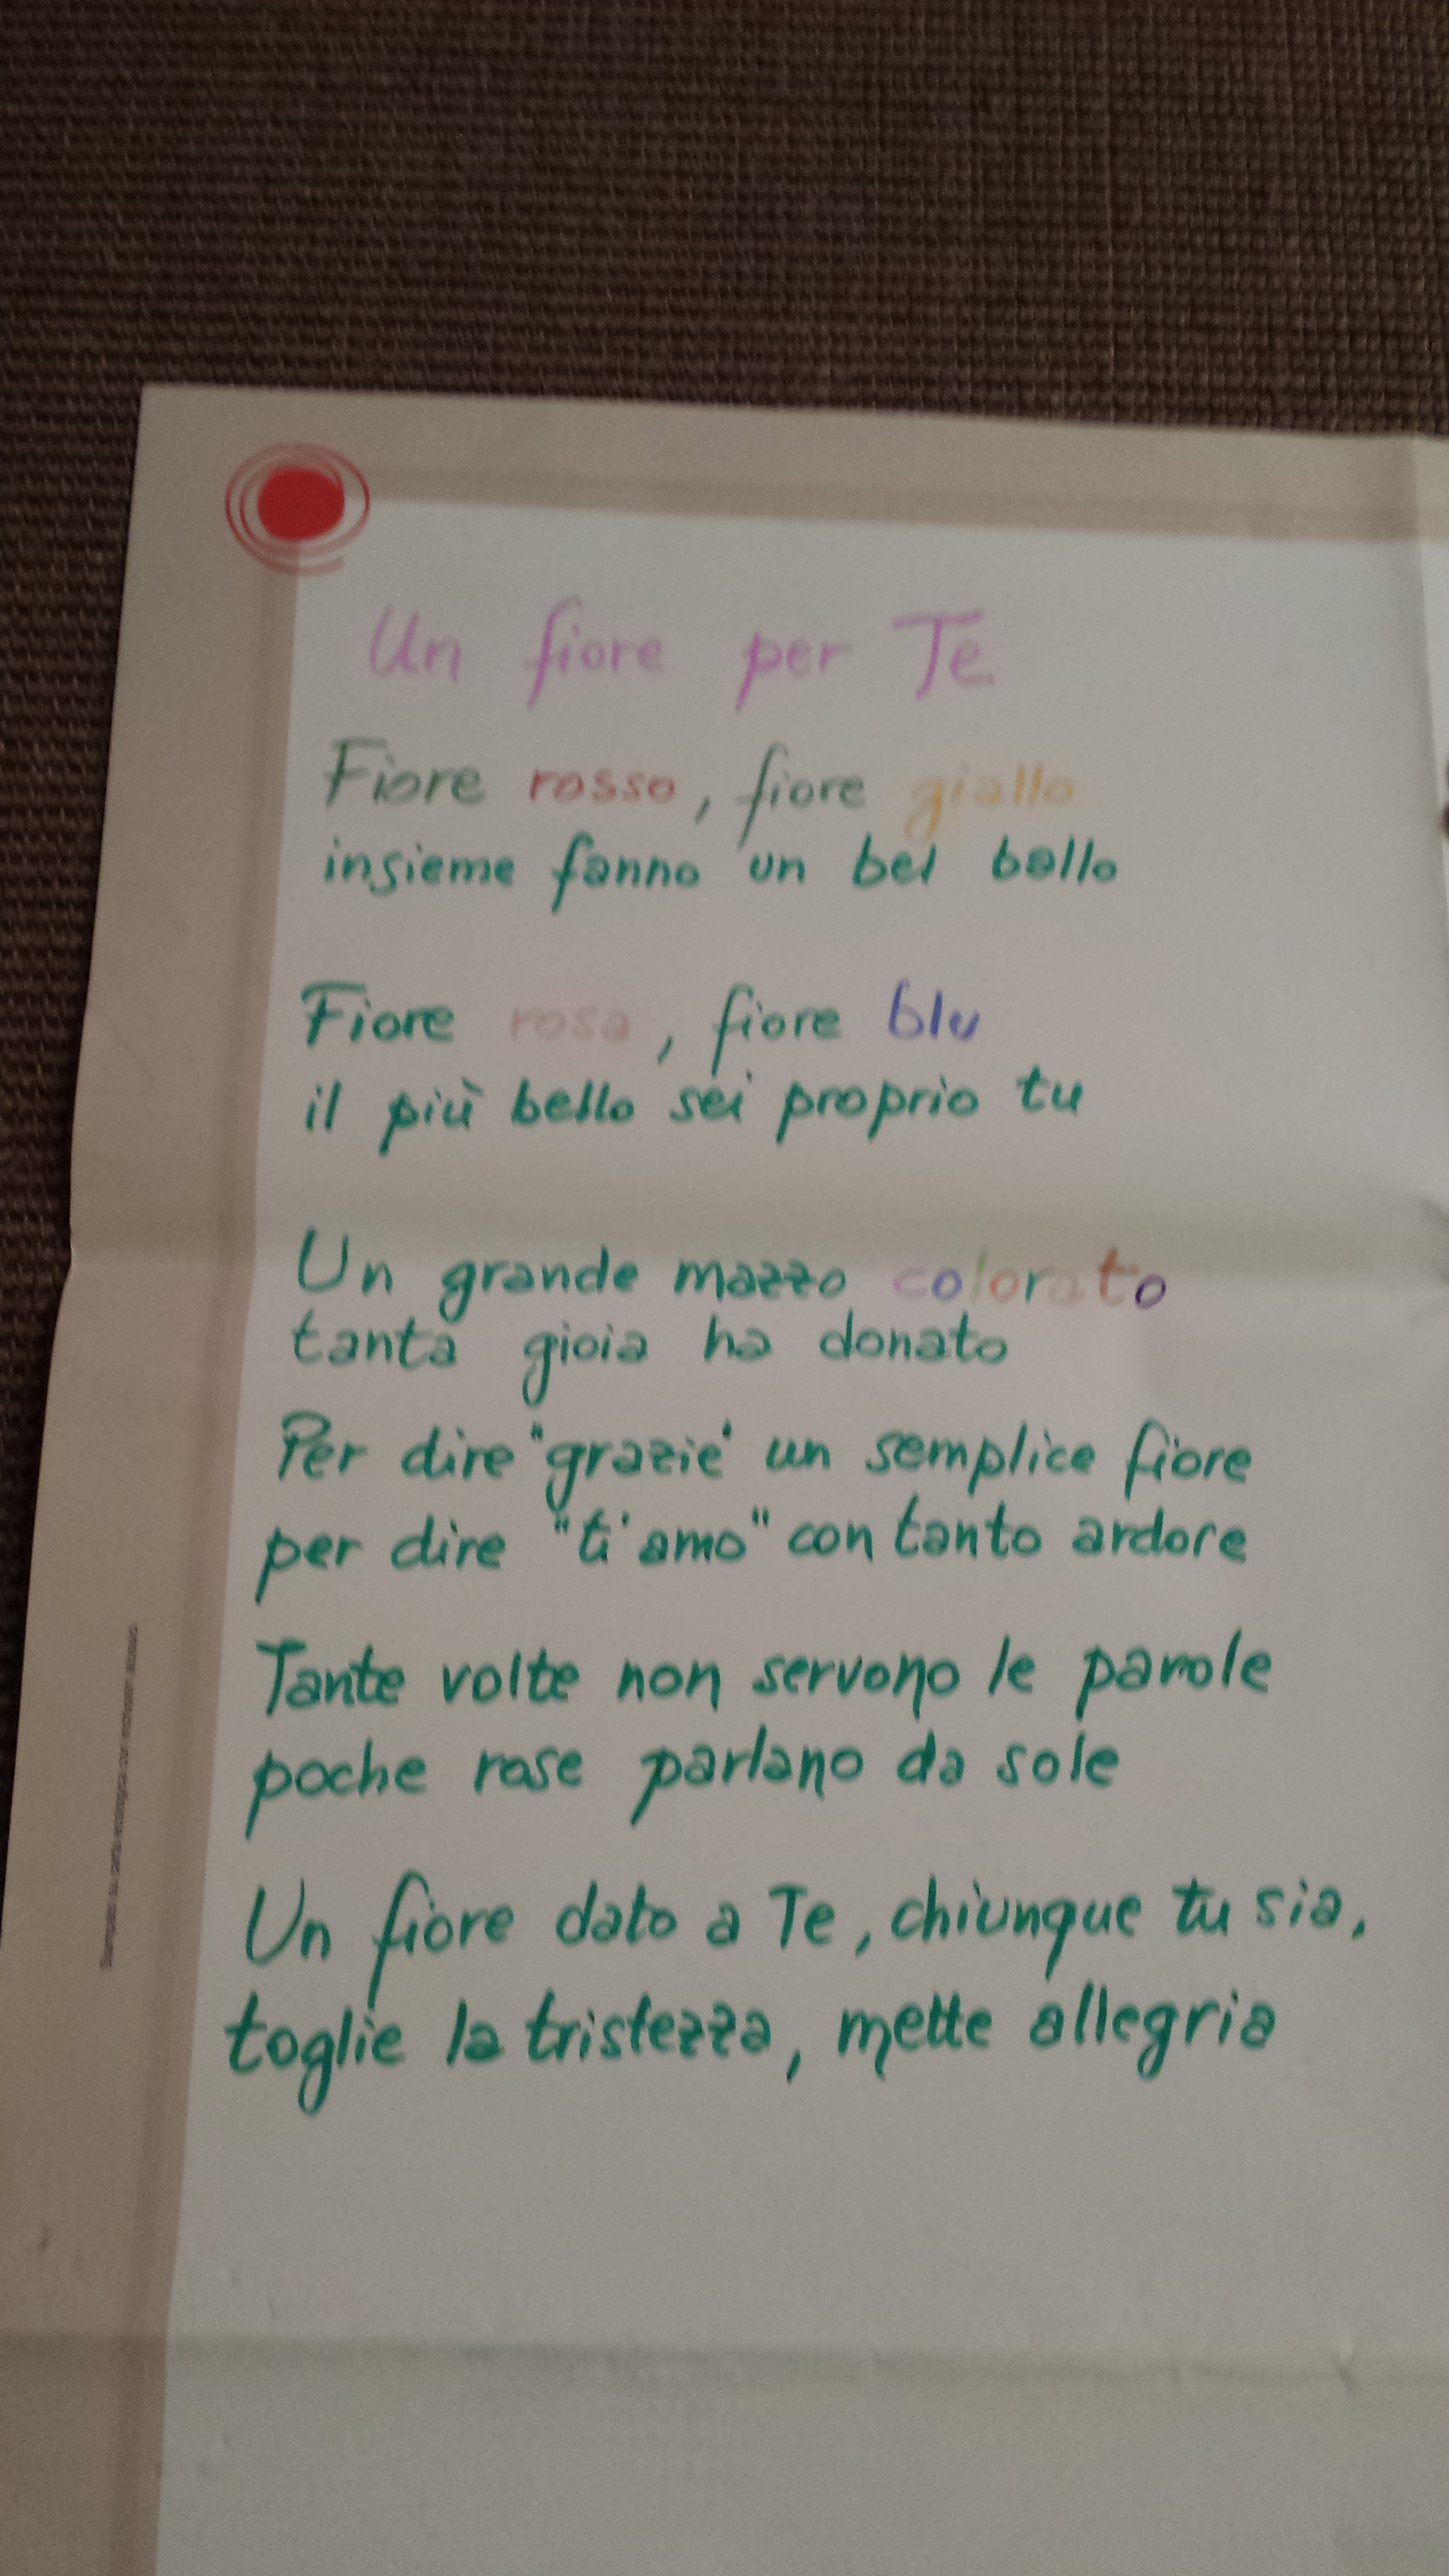 Un fiore per Te
Fiore rosso, fiore giallo
insieme fanno un bel ballo
Fiore rosa, fiore blu
il più bello sei proprio tu
Un grande mazzo colorato
tanta gioia ha donato
Per dire "grazie" un semplice fiore
per dire "ti amo" con tanto ardore
Tante volte non servono le parole
poche rose parlano da sole
Un fiore dato a Te, chiunque tu sia,
toglie la tristezza, mette allegria